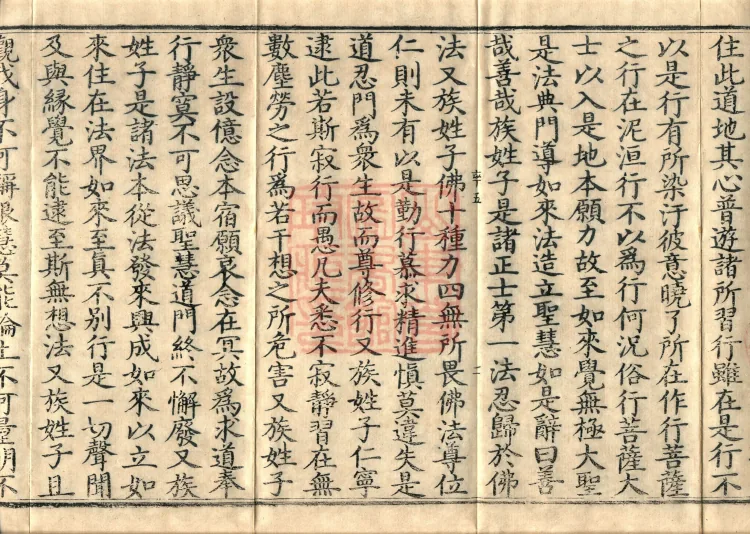 住此道地其心普遊諸所習行雖在是行不
以是行有所染汙彼意曉了所在作行菩薩
之行在泥洹行不以為行何況俗行菩薩大
士以入是地本願力故至如來覺無極大聖
是法典門導如來法造立聖慧如是辭曰善
哉善哉族姓子是諸正士第一法忍歸於佛
法又族姓子佛十種力四無所畏佛法尊位
仁則未有以是勤行慕求精進慎莫違失是
道忍門爲衆生故而尊修行又族姓子仁寧
逮此若斯寂行而愚凡夫悉不寂靜習在無
數塵勞之行爲若干想之所危害又族姓子
衆生設憶念本宿願哀念在冥故爲求道奉
行靜寞不可思議聖慧道門終不懈廢又族
姓子是諸法本從法發來興成如來以立如
來住在法界如來至真不別行是一切聲聞
及與緣覺不能逮至斯無想法又族姓子且
觀我身不可稱限慧莫能論土不可量明不